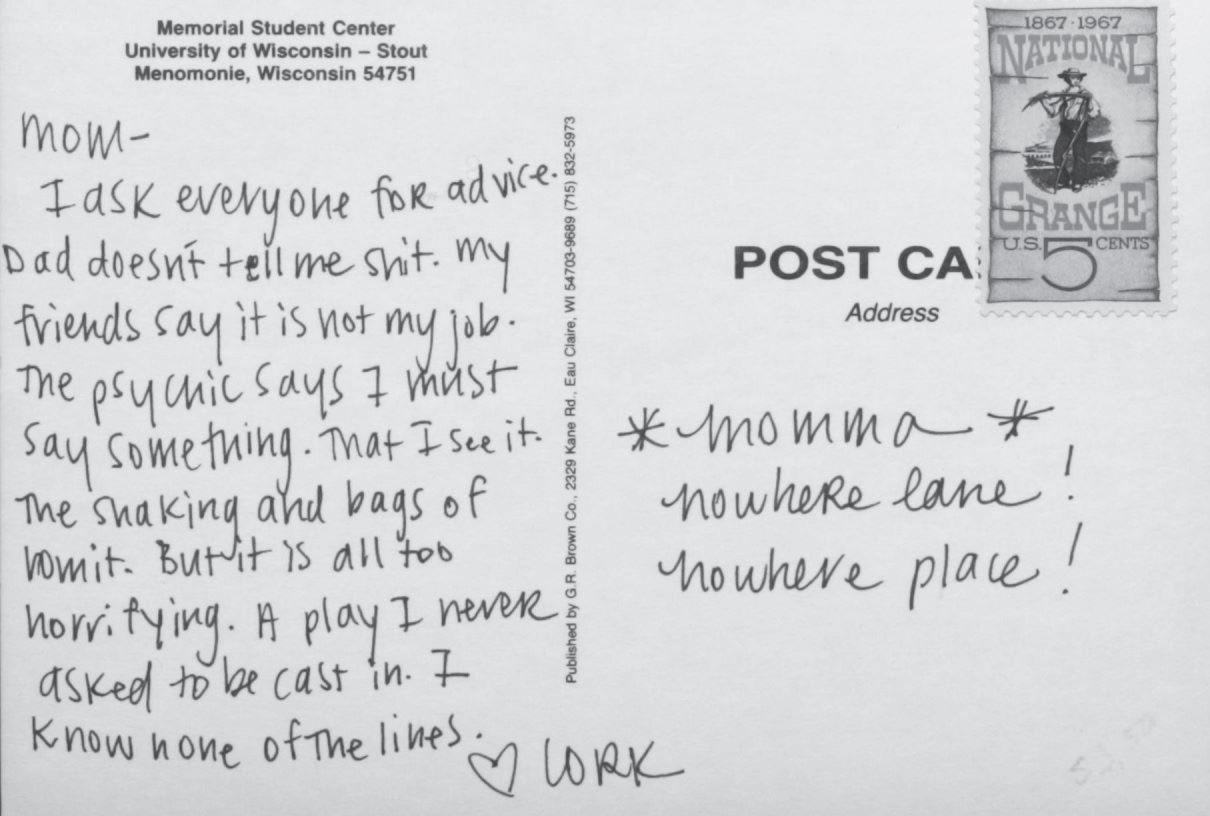 Memorial Student Center
University of Wisconsin – Stout
Menomonie, Wisconsin 54751
Mom-
I ask everyone for advice.
Dad doesn't tell me shit. My
friends say it is not my job.
The psychic says I must
say something. That I see it.
The shaking and bags of
vomit. But it is all too
horrifying. A play I never
asked to be cast in. I
know none of the lines.
♡ LORK
Published by G.R. Brown Co., 2329 Kane Rd., Eau Claire, WI 54703-9689 (715) 832-5973
1867·1967
NATIONAL
GRANGE
U.S. 5 CENTS
POST CA
Address
*momma*
nowhere lane!
nowhere place!